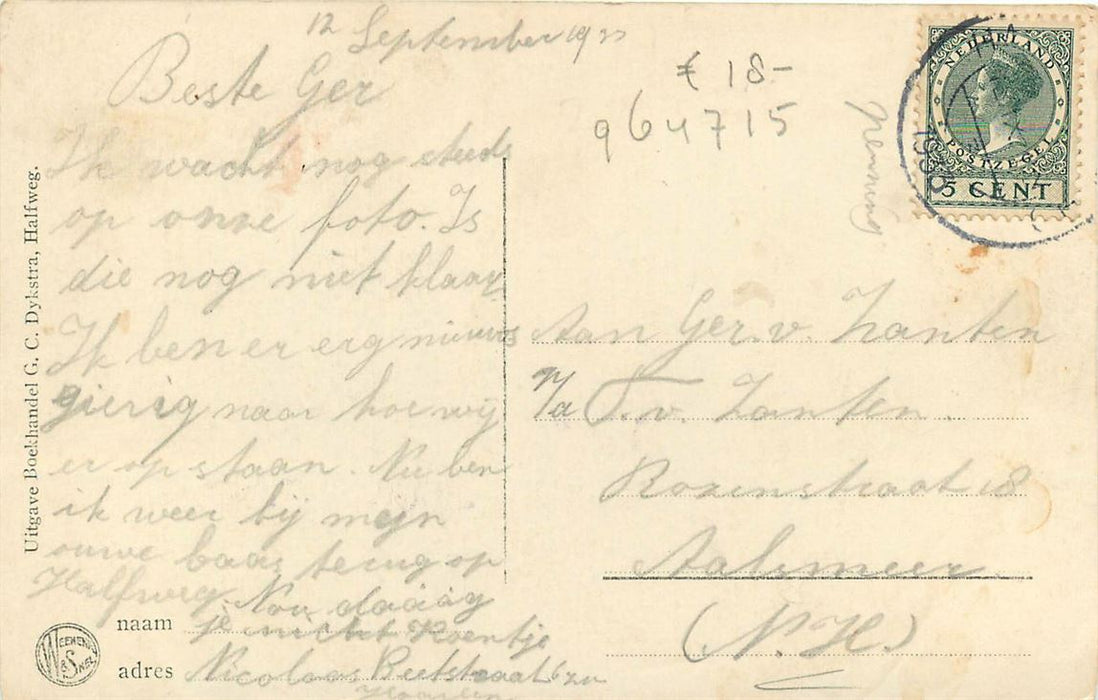 12 September 19
Beste Ger
Ik wacht nog steeds
op onze foto. Is
die nog niet klaar
Ik ben er erg nieuws
gierig naar hoe wij
er op staan. Nu ben
ik weer bij mijn
ouwe baas terug op
Halfweg. Nou daaag
je nicht
Nicolaas Beetsstraat
naam
adres
Uitgave Boekhandel G. C. Dykstra, Halfweg.
WEENENK & SNEL
€ 18-
964715
NEDERLAND
POSTZEGEL
5 CENT
Aan Ger. v. Zanten
P/a T. v. Zanten.
Rozenstraat 18
Aalsmeer
(N.H.)